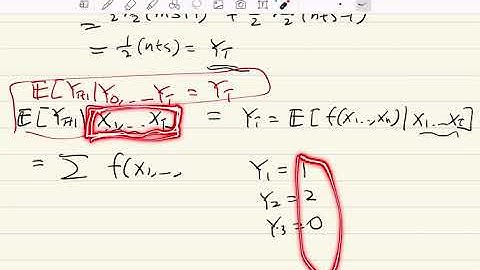 = ½(n+s) = Y_T
E[Y_{T+1}|Y_0, ... Y_T = Y_T
E[Y_{T+1}| X_1, ... X_T = Y_T = E[f(X_1 ..., X_n) | X_1 ... X_T]
= Σ f(X_1, ...,
Y_1 = 1
Y_2 = 2
Y_3 = 0